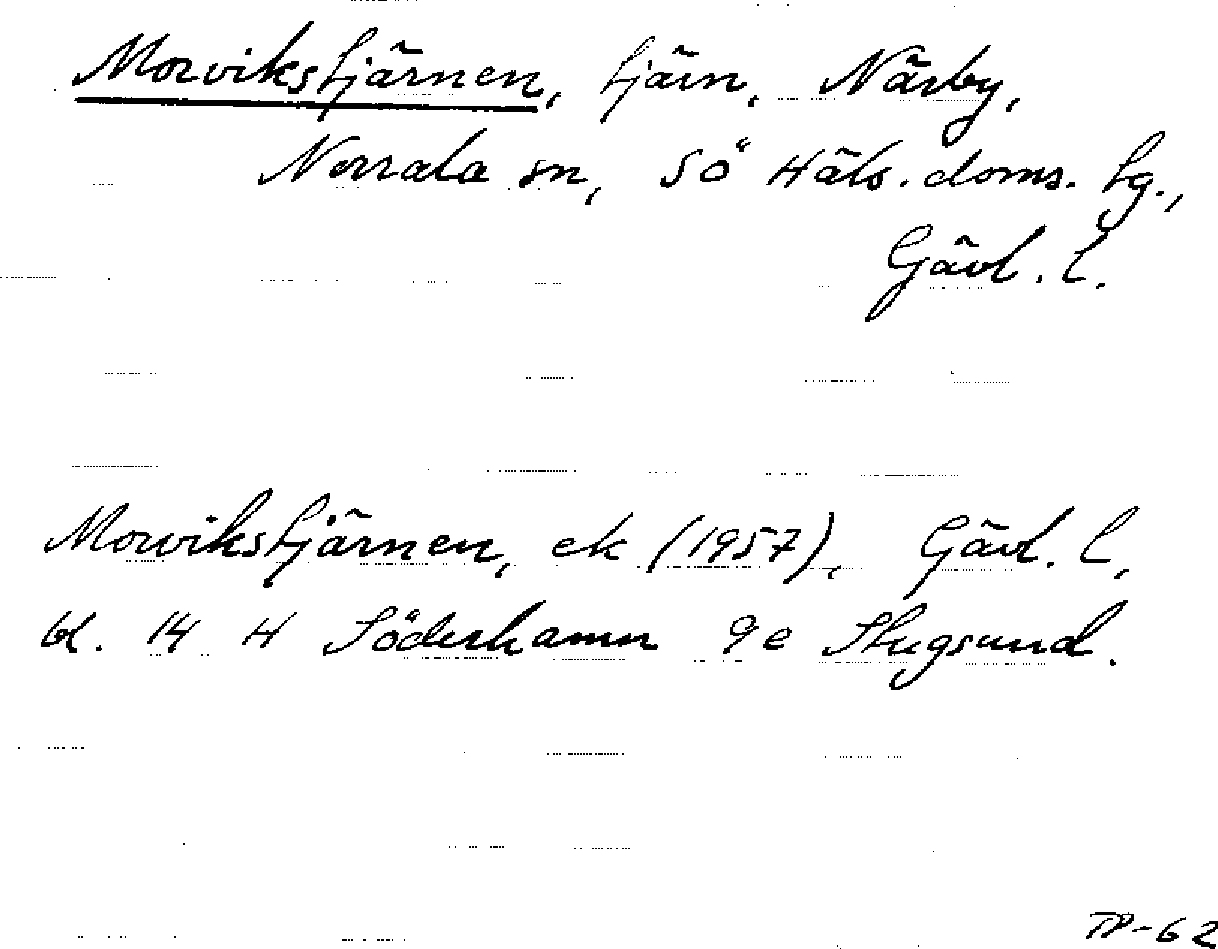 Morvikstjärnen, tjärn, Närby,
Norrala sn, Sö Häls. doms. tg.,
Gävl. l.
Morvikstjärnen, ek (1957), Gävl. l,
bl. 14 H Söderhamn 9e Stugsund.
TP-62